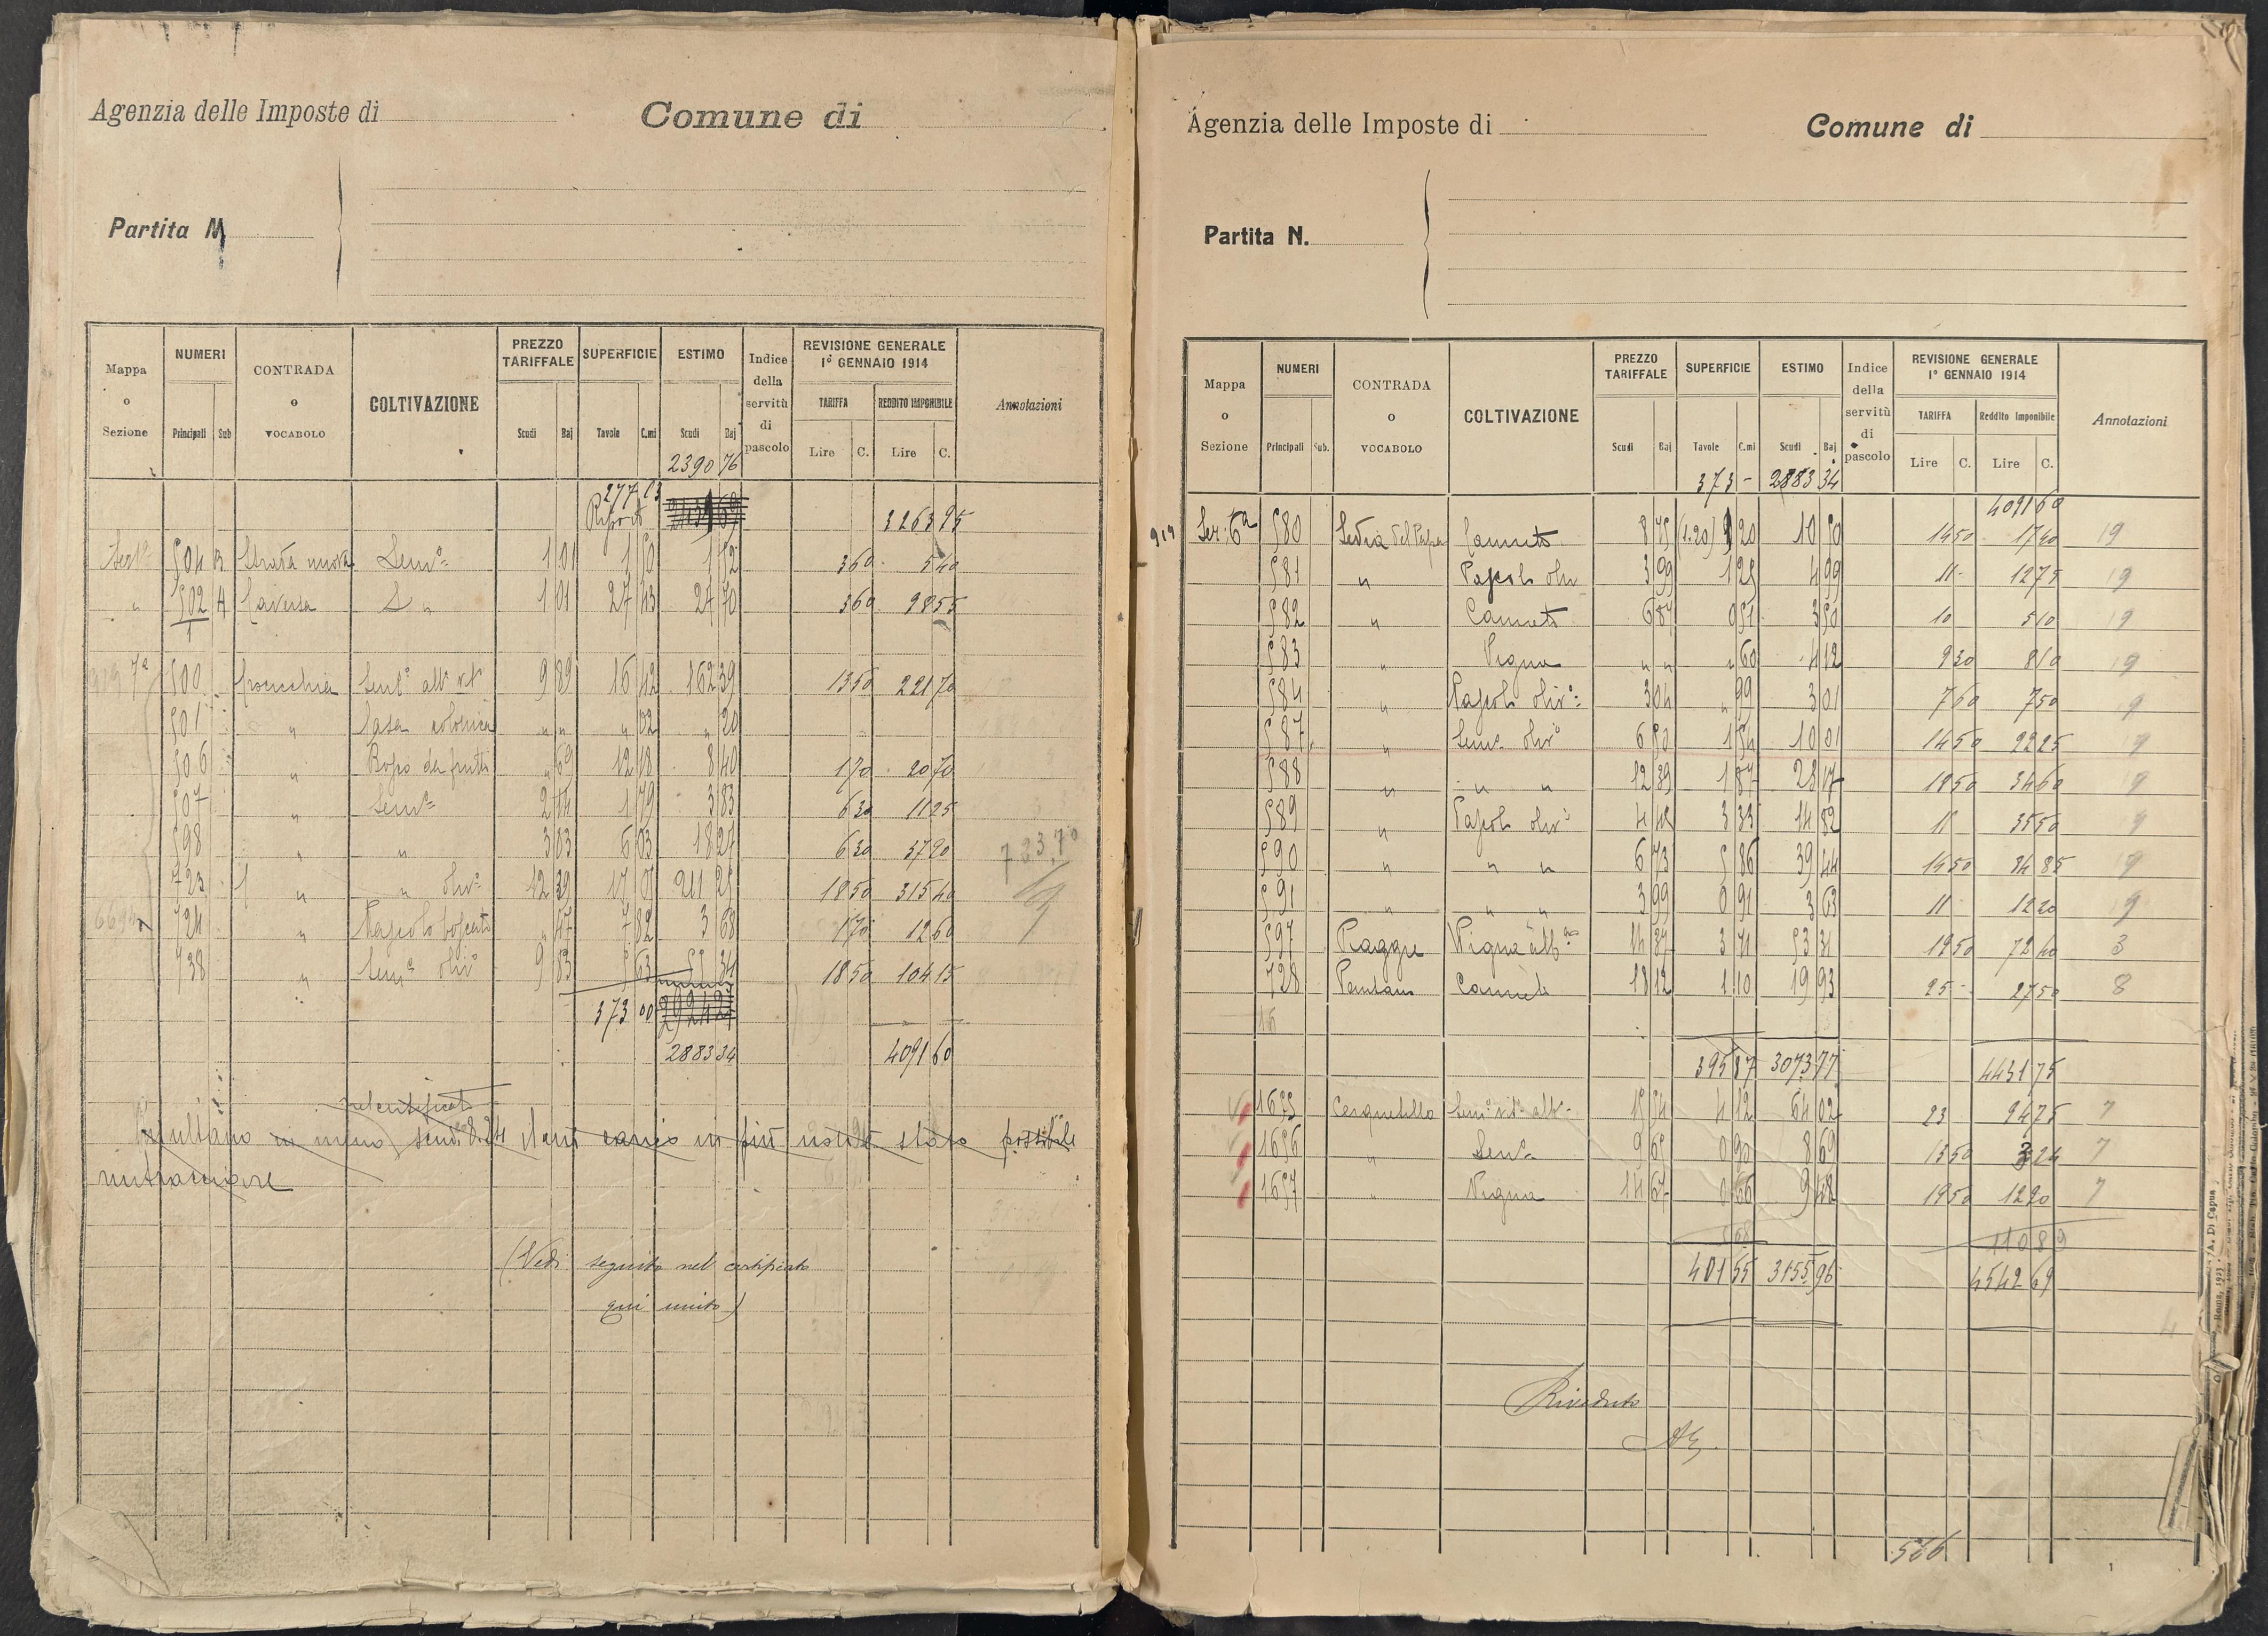 Agenzia delle Imposte di
Comune di
Partita N
Mappa o Sezione | NUMERI Principali Sub | CONTRADA o VOCABOLO | COLTIVAZIONE | PREZZO TARIFFALE Scudi Baj | SUPERFICIE Tavole C.mi | ESTIMO Scudi Baj | Indice della servitù di pascolo | REVISIONE GENERALE 1° GENNAIO 1914 TARIFFA Lire C. REDDITO IMPONIBILE Lire C. | Annotazioni
2390 76
277 03
Riporto 3263 95
504 Strada nuova Sem.° 1 01 1 50 1 52 3 60 5 40
" 502 4 Caversa D " 1 01 27 43 27 70 3 60 98 55
1
7a 500 Sem.° alb.° vit.° 9 89 16 42 162 39 13 50 221 70
501 " Casa colonica " " " 02 " 20
506 " Bosco da frutti " 69 12 18 8 40 1 70 20 70
507 " Sem.° 2 14 1 79 3 83 6 30 11 25
598 " " 3 03 6 03 18 27 6 30 37 90
723,70
723 " " oliv.° 12 39 17 05 211 25 18 50 315 40
724 " Pascolo boscato " 47 7 82 3 68 1 70 12 60
738 " Sem.° oliv.° 9 83 5 63 55 34 18 50 104 15
373 00
2883 34 4091 60
nel certificato
Risultano in meno scudi 8.24 d'cui carico in più non è stato possibile
rintracciare
(Vedi seguito nel certificato
qui unito)
Agenzia delle Imposte di
Comune di
Partita N.
Mappa o Sezione | NUMERI Principali Sub. | CONTRADA o VOCABOLO | COLTIVAZIONE | PREZZO TARIFFALE Scudi Baj | SUPERFICIE Tavole C.mi | ESTIMO Scudi Baj | Indice della servitù di pascolo | REVISIONE GENERALE 1° GENNAIO 1914 TARIFFA Lire C. Reddito Imponibile Lire C. | Annotazioni
373 - 2883 34
4091 60
919 Sez. 6a 580 Sedia del Papa Canneto 8 75 (1.20) 1 20 10 50 14 50 17 40 19
581 " Pascolo oliv 3 99 1 25 4 99 11 - 12 75 19
582 " Canneto 6 87 0 51 3 50 10 5 10 19
583 " Vigna " " " 60 4 12 9 30 8 10 19
584 " Pascolo oliv.° 3 04 " 99 3 01 7 60 7 50 19
587 " Sem.° oliv.° 6 50 1 54 10 01 14 50 22 25 19
588 " " " 12 39 1 87 23 17 18 50 34 60 19
589 " Pascolo oliv.° 4 48 3 33 14 82 11 35 50 19
590 " " " 6 73 5 86 39 44 14 50 84 85 19
591 " " " 3 99 0 91 3 63 11 12 20 19
597 Piagge Vigna alb.ta 14 37 3 71 53 31 19 50 72 40 3
728 Pantano Canneto 18 12 1 10 19 93 25 - 27 50 8
395 87 3073 77 4431 75
1655 Cerquetello Sem.° vit.° alb.° 15 54 4 12 64 02 23 94 75 7
1656 " Sem.° 9 65 0 90 8 69 13 50 3 24 7
1657 " Vigna 14 67 0 66 9 48 19 50 12 90 7
5 68 110 89
401 55 3155 96 4542 69
Riveduto
566
1